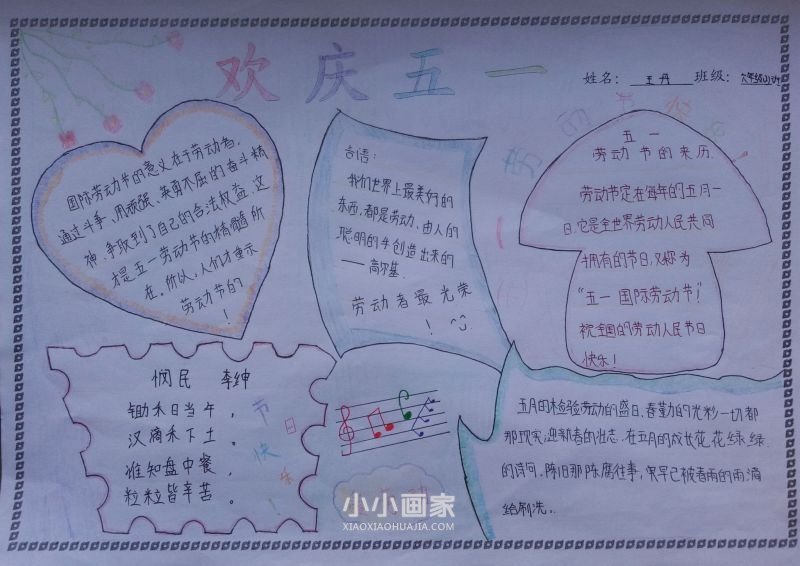 欢庆五一
姓名： 王丹 班级：
国际劳动节的意义在于劳动者，
通过斗争、用顽强、英勇不屈的奋斗精
神、争取到了自己的合法权益。这
才是五一劳动节的精髓所
在。所以，人们才重示
劳动节的
！
名语：
我们世界上最美好的
东西，都是劳动、由人的
聪明的手创造出来的
——高尔基.
劳动者最光荣
！
五一
劳动节的来历.
劳动节定在每年的五月一
日.它是全世界劳动人民共同
拥有的节日，又称为
“五一国际劳动节”！
祝全国的劳动人民节日
快乐！
悯民 李绅
锄禾日当午，
汉滴禾下土。
谁知盘中餐，
粒粒皆辛苦。
节
日
快
乐！
五月的检验劳动的盛日、春勤的光彩一切都
那现实，迎新春的壮志.在五月的成长花花绿绿
的诗句.陈旧那陈腐往事，早已被春雨的雨滴
给刷洗。
小小画家
XIAOXIAOHUAJIA.COM